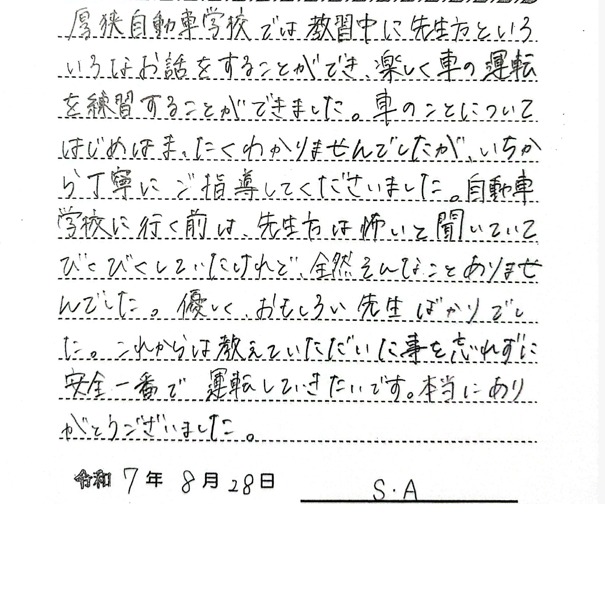 厚狭自動車学校では教習中に先生方といろ
いろなお話をすることができ、楽しく車の運転
を練習することができました。車のことについて
はじめはまったくわかりませんでしたが、いちか
ら丁寧にご指導してくださいました。自動車
学校に行く前は、先生方は怖いと聞いていて
びくびくしていたけれど、全然そんなことありませ
んでした。優しく、おもしろい先生ばかりでし
た。これからは教えていただいた事を忘れずに
安全一番で運転していきたいです。本当にあり
がとうございました。
令和 7年 8月 28日 S.A